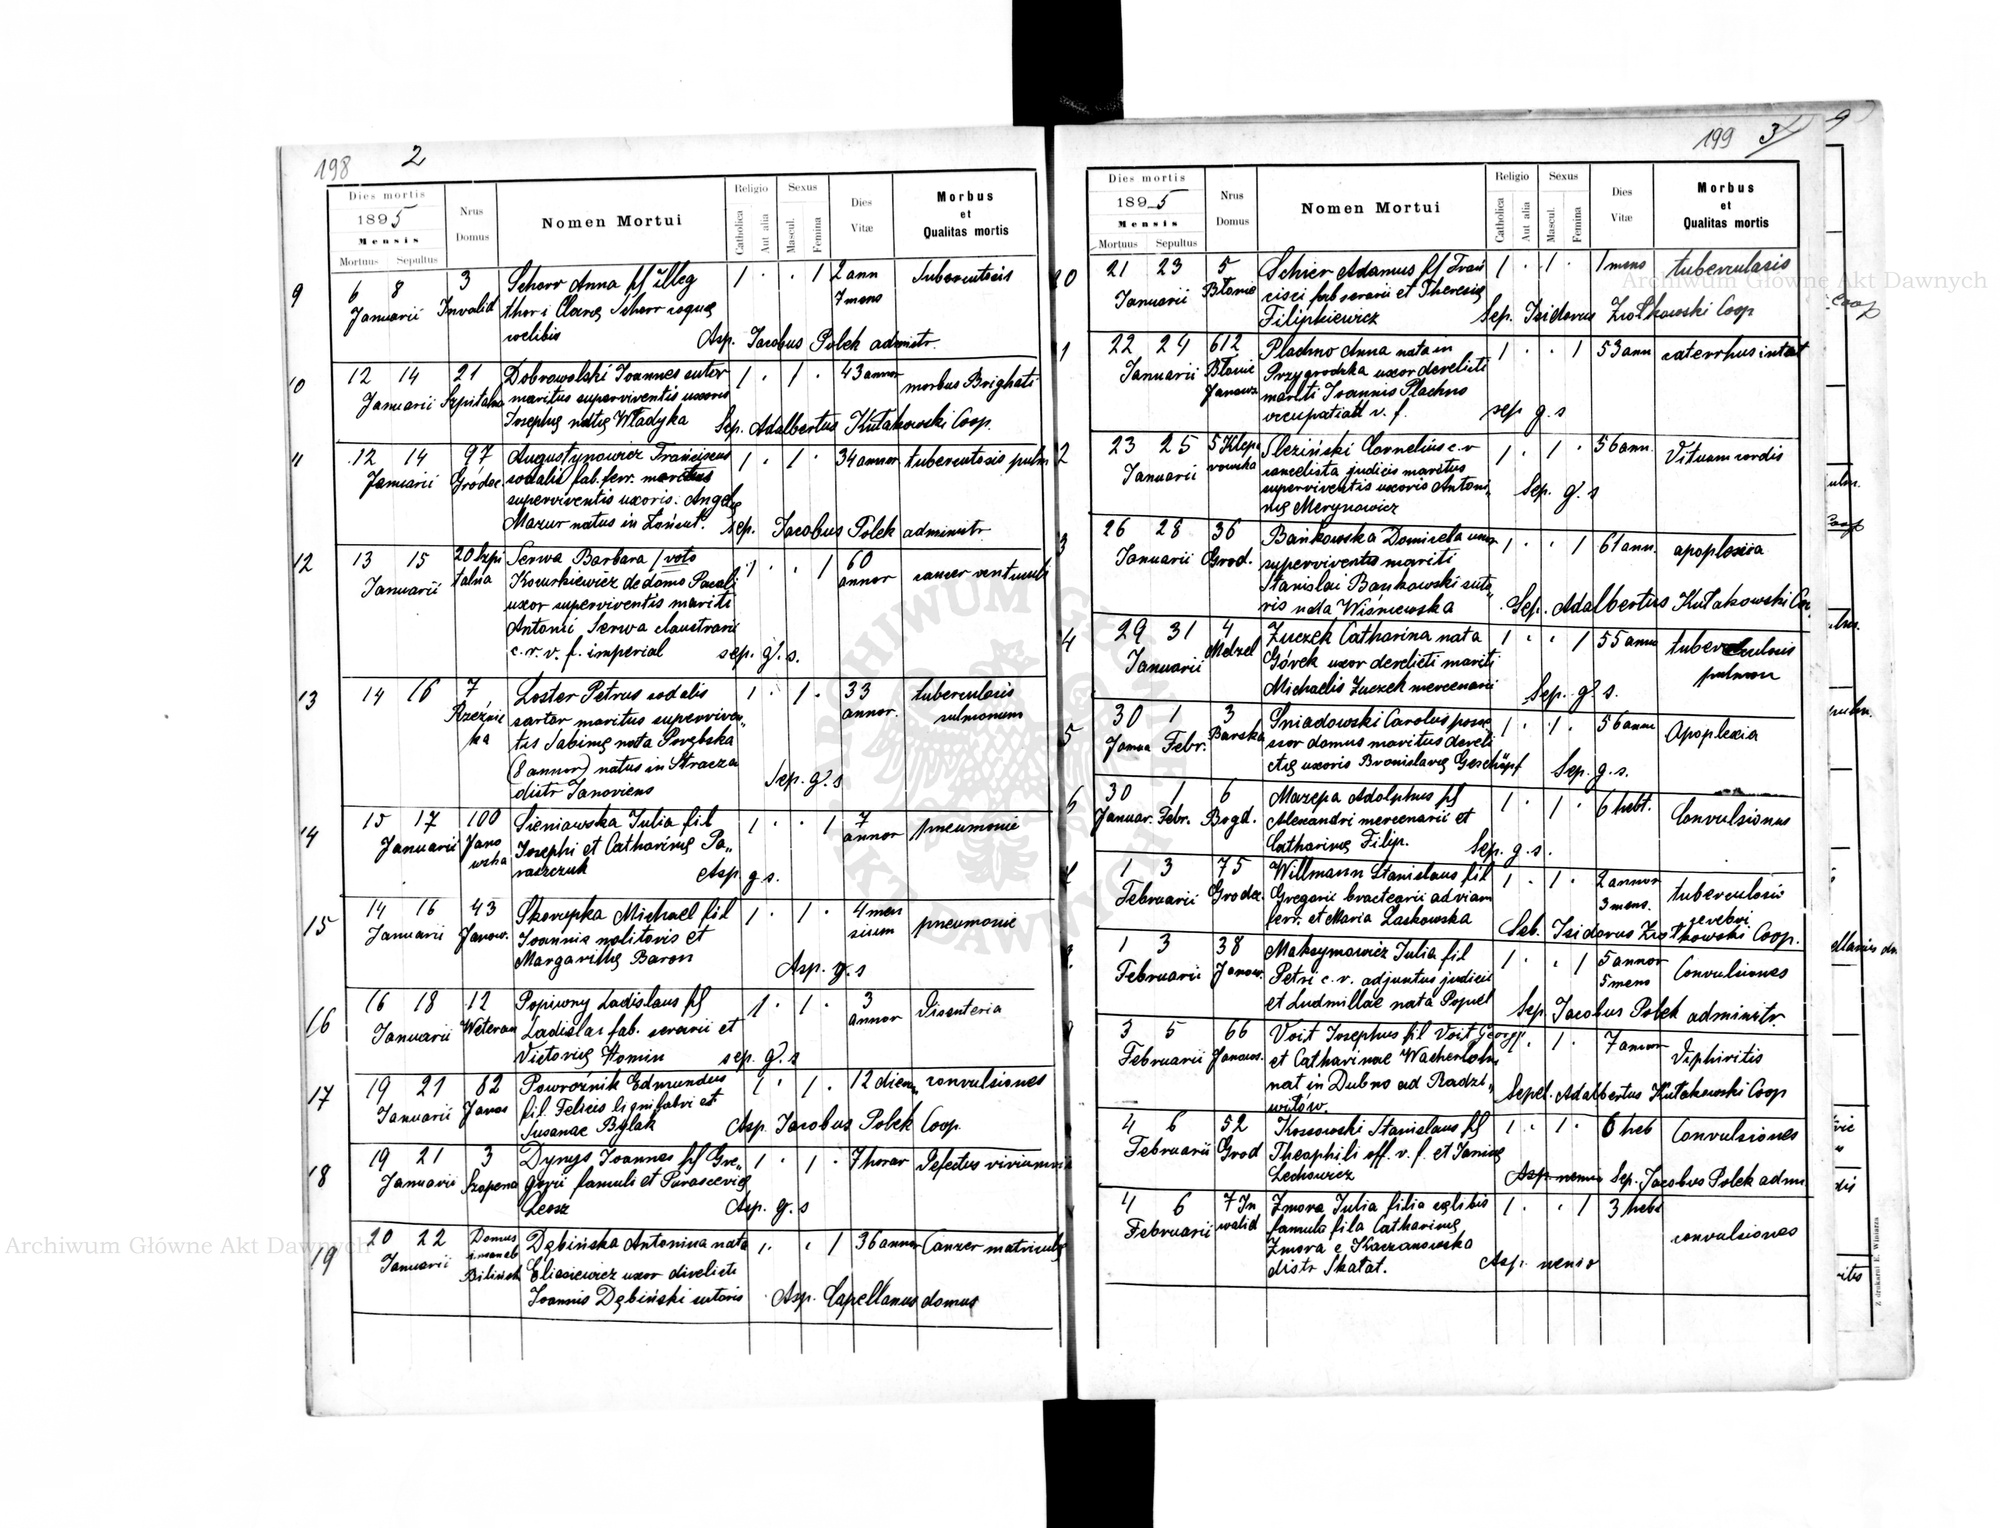 198 2
Dies mortis
1895
Mensis
Mortuus Sepultus
Nrus Domus
Nomen Mortui
Religio
Catholica
Aut alia
Sexus
Mascul.
Femina
Dies Vitæ
Morbus
et
Qualitas mortis
9 6 8 3 Schorr Anna fil illeg 1 . . 1 2 ann tuberculosis
Januarii Invalid thori Clarę Schorr coquę 7 mens
celibis Asp. Jacobus Polek admstr.
10 12 14 21 Dobrowolski Joannes sutor 1 . 1 . 43 annor morbus Brighoti
Januarii Szpitalna maritus superviventis uxoris
Josephę natę Władyka Sep. Adalbertus Kułakowski Coop.
11 12 14 97 Augustynowicz Franciscus 1 . 1 . 34 annor tuberculosis pulm
Januarii Gródec. sodalis fab. ferr. maritus
superviventis uxoris. Angelę
Mazur natus in Łańcut. Sep. Jacobus Polek adminstr
12 13 15 20 Szpi Serwa Barbara 1 voto 1 . . 1 60 cancer ventriculi
Januarii talna Kowrkiewicz de domo annor
uxor superviventis mariti
Antonii Serwa claustrarii
c. r. v. f. imperial sep. g. s.
13 14 16 7 Loster Petrus sodalis 1 . 1 . 33 tuberculosis
Rzeźnic sartor maritus superviven„ annor. pulmonum
ka tis Sabinę nata Porębska
(8 annor) natus in Stracza
distr Janoviens Sep. g. s
14 15 17 100 Sieniawska Julia fil 1 . . 1 7 pneumonie
Januarii Jano Josephi et Catharinę Pa„ annor
wska raszczuk Asp g s.
15 14 16 43 Skorupka Michael fil 1 . 1 . 4 men pneumonie
Januarii Janow. Joannis molitoris et sium
Margarithę Baron Asp. g. s
16 16 18 12 Popiwny Ladislaus fil 1 . 1 . 3 Disenteria
Januarii Weteran Ladislai fab. serarii et annor
Victorię Homin sep. g. s
17 19 21 82 Powroźnik Edmundus 1 . 1 . 12 dierum convulsiones
Januarii Janow fil. Felicis lignifabri et
Susanae Bylak Asp. Jacobus Polek Coop.
18 19 21 3 Dynys Joannes fil Gre„ 1 . 1 . 7 horar Defectus virium
Januarii Szopena gorii famuli et Parascevię
Leosz Asp. g. s
19 20 22 Domus Dębińska Antonina nata 1 . . 1 36 annor Canzer matriculę
Januarii Eliasiewicz uxor direlicti
Biliński Joannis Dębiński sutoris Asp. Capellanus domus
199 3
Dies mortis
1895
Mensis
Mortuus Sepultus
Nrus
Domus
Nomen Mortui
Religio
Catholica
Aut alia
Sexus
Mascul.
Femina
Dies
Vitæ
Morbus
et
Qualitas mortis
20 21 23 5 Schier Adamus fil Fran 1 . 1 . 1 mens tuberculosis
Januarii Błonie cisci fab serarii et Theresię
Filipkiewicz Sep. Isidorus Ziołkowski Coop
1 22 24 612 Plachno Anna nata 1 . . 1 53 ann catarrhus intest
Januarii Błonie Przygrodzka uxor derelicti
Janowz mariti Joannis Plachno
v. f. sep g. s
2 23 25 5 Klepa Sleziński Cornelius c. r 1 . 1 . 56 ann. Vitium cordis
Januarii rowska cancelista judicis maritus
superviventis uxoris Antoni„
nę Merynowicz Sep. g. s
3 26 28 36 Bańkowska Domicela uxor 1 . . 1 61 ann. apoplexia
Januarii Grod. superviventis mariti
Stanislai Bańkowski suto„
ris nata Wiśniewska Sep. Adalbertus Kułakowski Co.
4 29 31 4 Zuczek Catharina nata 1 . . 1 55 annor tuberculosis
Januarii Melzel Górek uxor derelicti mariti pulmon
Michaelis Zuczek mercenarii Sep. g. s.
5 30 1 3 Sniadowski Carolus posse 1 . 1 . 56 annor Apoplexia
Janua Febr. Barska ssor domus maritus dereli
ctę uxoris Bronislavę Geschöpf Sep. g. s.
6 30 1 6 Mazepa Adolphus fil 1 . 1 . 6 hebt. Convulsiones
Januar. Febr. Bogd. Alexandri mercenarii et
Catharinę Filip. Sep. g. s.
1 3 75 Willmann Stanislaus fil 1 . 1 . 2 annor tuberculosis
Februarii Grodec. Gregorii bractearii ad viam 3 mens. cerebri
ferr. et Maria Laskowska Sep. Isidorus Ziołkowski Coop.
1 3 38 Maksymowicz Julia fil 1 . . 1 5 annor Convulsiones
Februarii Janow. Petri c. r. adjuntus judicii 5 mens
et Ludmillae nata Popiel Sep. Jacobus Polek adminstr.
3 5 66 Voit Josephus fil Voit Georgy 1 . 1 . 7 annor Diphiritis
Februarii Janows. et Catharinae
nat in Dubno ad Radzi„
wiłów. Sepel. Adalbertus Kułakowski Coop
4 6 52 Kossowski Stanislaus fil 1 . 1 . 6 heb Convulsiones
Februarii Grod Theophili off. v. f. et Janinę
Lechowicz Asp. nemo Sep. Jacobus Polek admi
4 6 7 In Zmora Julia filia cęlibis 1 . . 1 3 hebd convulsiones
Februarii walid famula fila Catharinę
Zmora e Kaczanowska
distr Skałat. Asp. nemo
Z drukarni E. Winiarza
Archiwum Główne Akt Dawnych
Archiwum Główne Akt Dawnych
ARCHIWUM GŁÓWNE AKT DAWNYCH